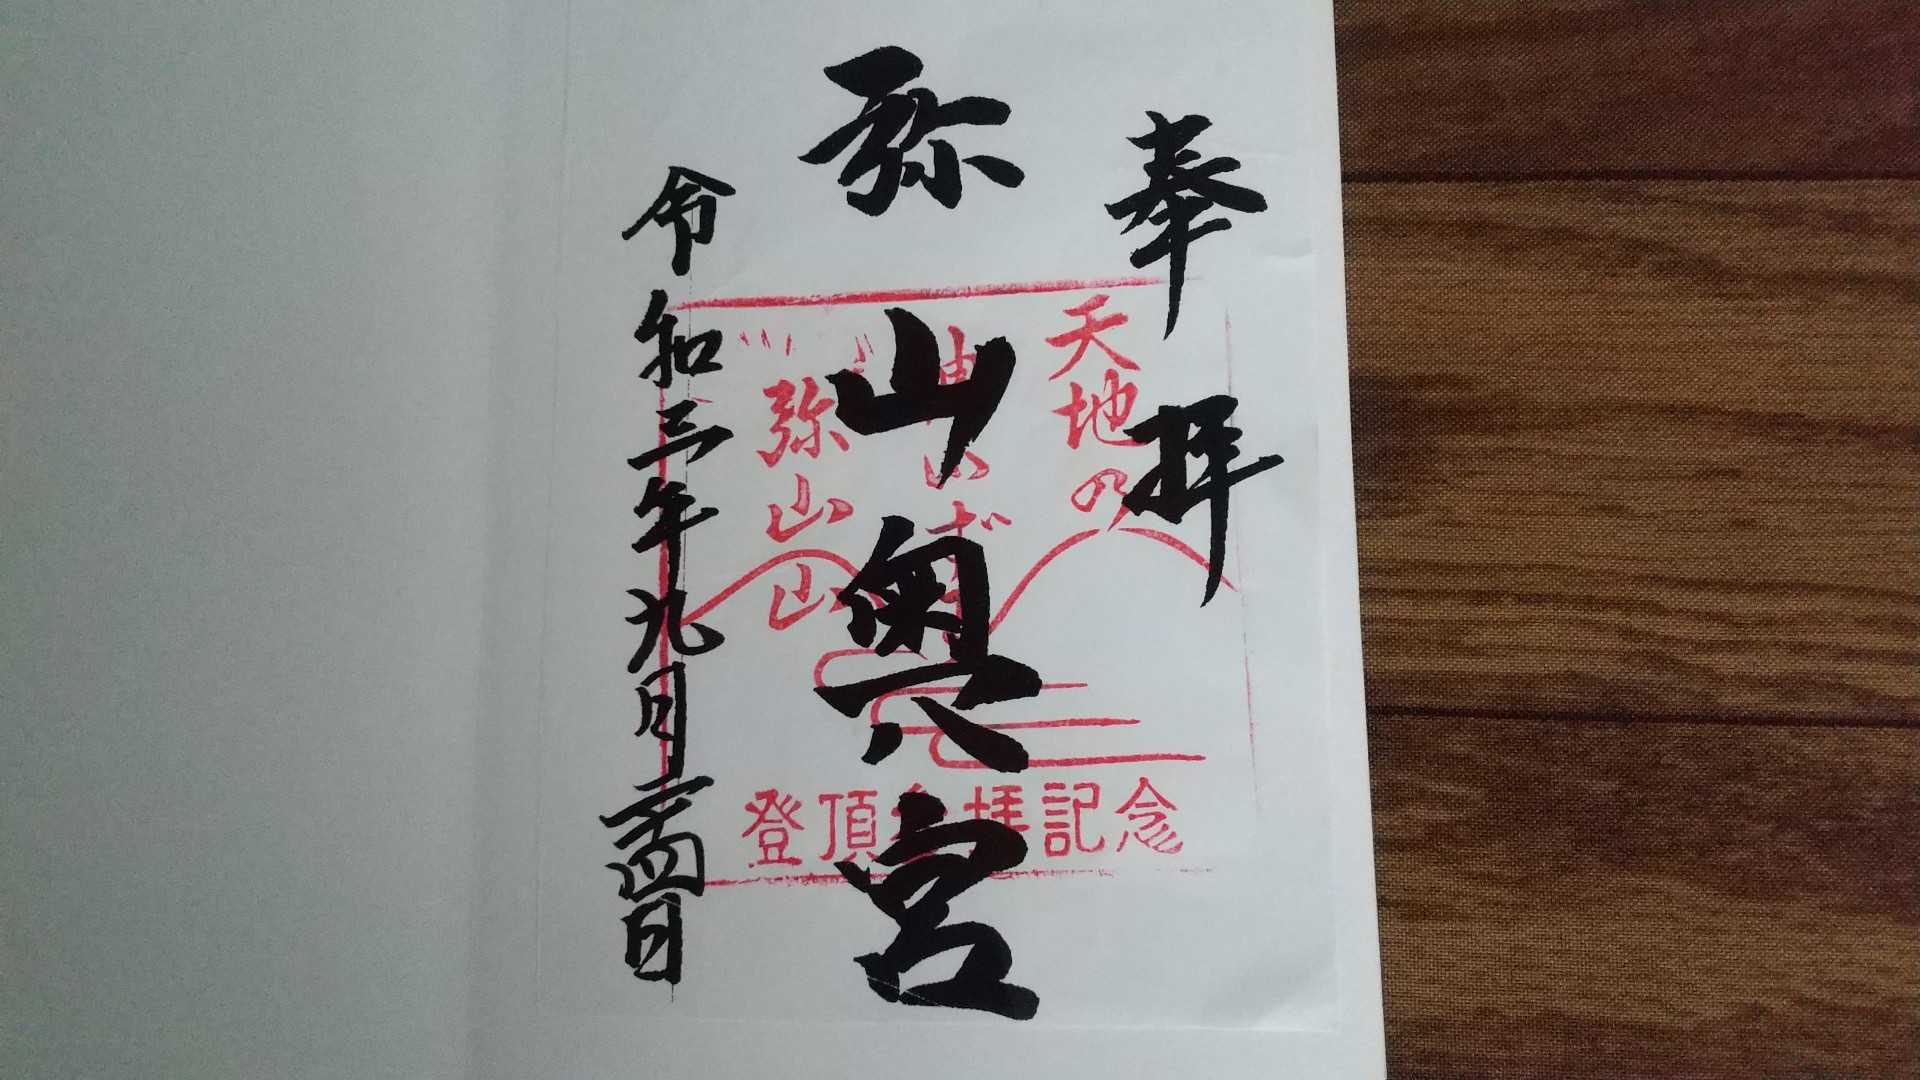 奉拝
弥山奥宮
令和三年九月二十四日
天地の
弥山山
登頂参拝記念